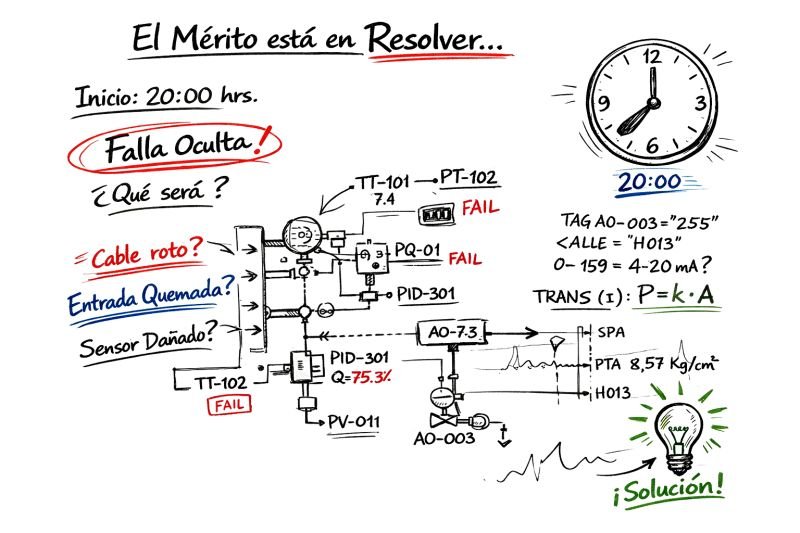 El Mérito está en Resolver...
Inicio: 20:00 hrs.
Falla Oculta!
¿Qué será?
12
9
3
6
20:00
TT-101
PT-102
7.4
FAIL
PQ-01
FAIL
PID-301
Cable roto?
Entrada Quemada?
Sensor Dañado?
TT-102
FAIL
PID-301
Q=75.3%
PV-011
TAG AO-003="255"
<ALLE = "H013"
0-159 = 4-20 mA?
TRANS (I): P=k·A
AO-7.3
SPA
PTA 8,57 Kg/cm²
H013
AO-003
¡Solución!